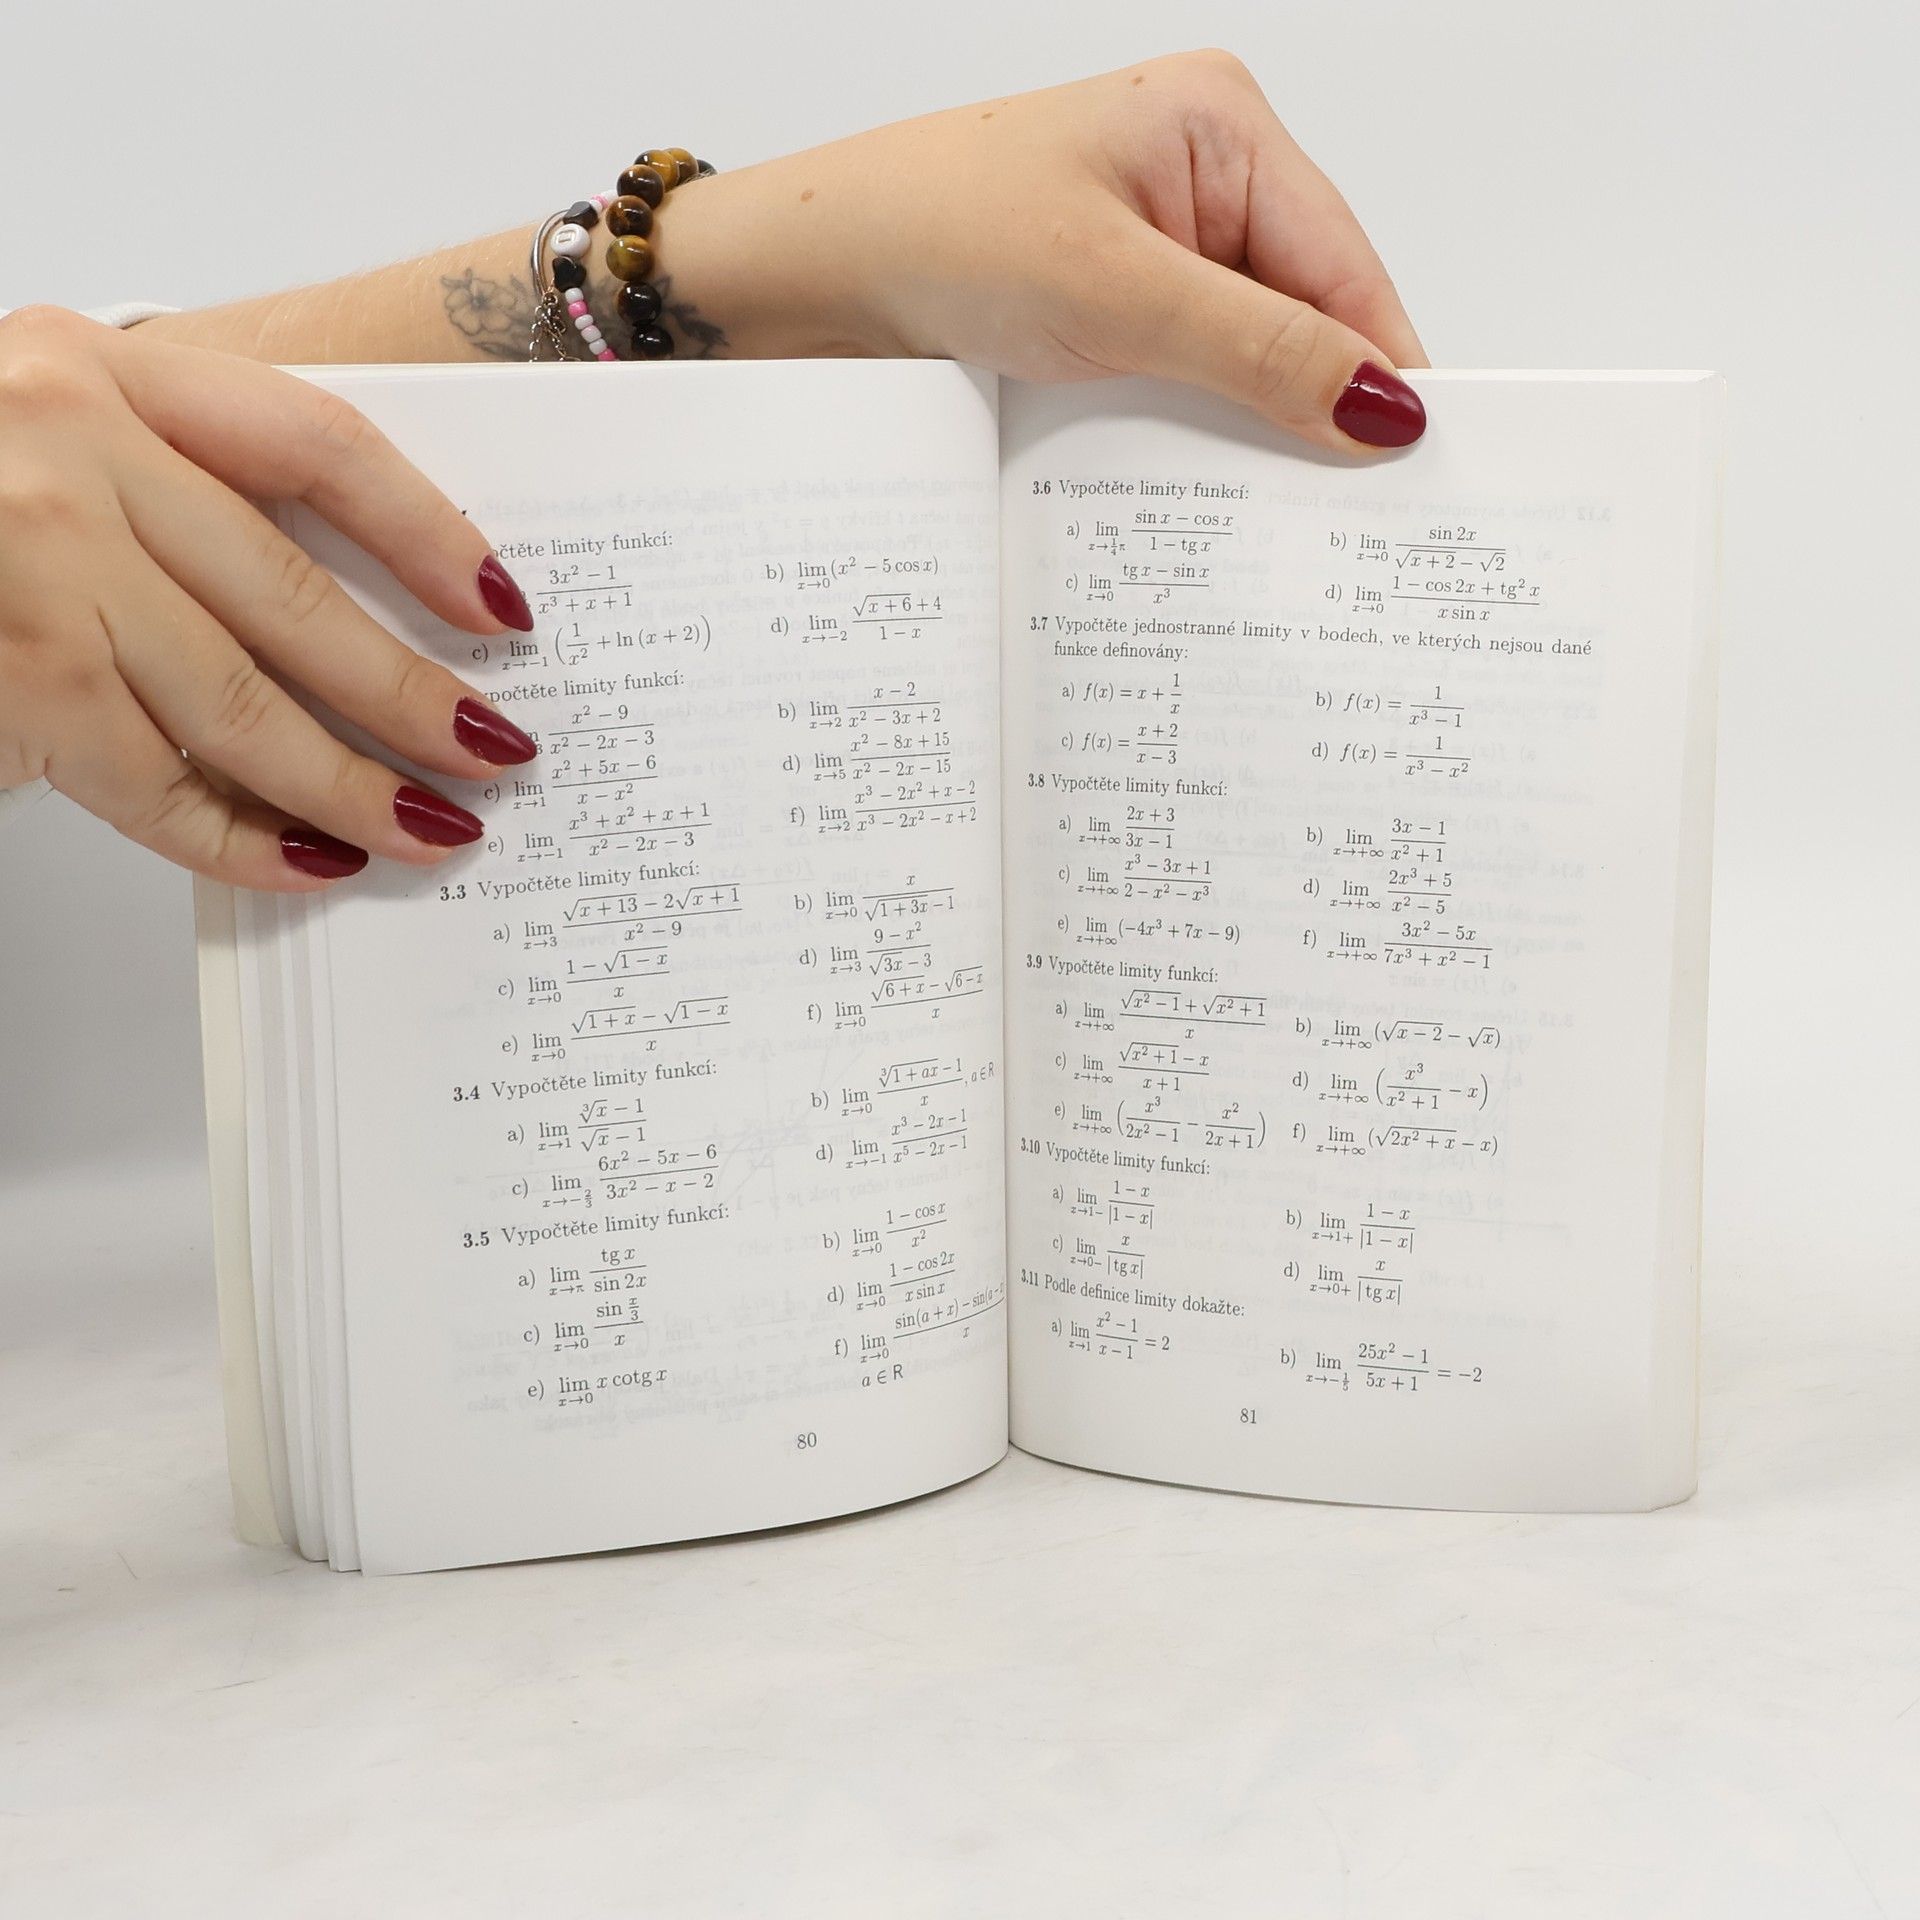 počtěte limity funkcí:
3x² − 1 / x³ + x + 1
b) lim x→0 (x² − 5 cos x)
c) lim x→−1 (1/x² + ln (x + 2))
d) lim x→−2 (√(x + 6) + 4) / (1 − x)
ypočtěte limity funkcí:
x² − 9 / x² − 2x − 3
b) lim x→2 (x − 2) / (x² − 3x + 2)
c) lim x→1 (x² + 5x − 6) / (x − x²)
d) lim x→5 (x² − 8x + 15) / (x² − 2x − 15)
e) lim x→−1 (x³ + x² + x + 1) / (x² − 2x − 3)
f) lim x→2 (x³ − 2x² + x − 2) / (x³ − 2x² − x + 2)
3.3 Vypočtěte limity funkcí:
a) lim x→3 (√(x + 13) − 2√(x + 1)) / (x² − 9)
b) lim x→0 x / (√(1 + 3x) − 1)
c) lim x→0 (1 − √(1 − x)) / x
d) lim x→3 (9 − x²) / (√(3x) − 3)
e) lim x→0 (√(1 + x) − √(1 − x)) / x
f) lim x→0 (√(6 + x) − √(6 − x)) / x
3.4 Vypočtěte limity funkcí:
a) lim x→1 (∛x − 1) / (√x − 1)
b) lim x→0 (∛(1 + ax) − 1) / x, a ∈ R
c) lim x→−2/3 (6x² − 5x − 6) / (3x² − x − 2)
d) lim x→−1 (x³ − 2x − 1) / (x⁵ − 2x − 1)
3.5 Vypočtěte limity funkcí:
a) lim x→π tg x / sin 2x
b) lim x→0 (1 − cos x) / x²
c) lim x→0 sin (x/3) / x
d) lim x→0 (1 − cos 2x) / (x sin x)
e) lim x→0 x cotg x
f) lim x→0 (sin(a + x) − sin(a − x) / x
a ∈ R
80
3.6 Vypočtěte limity funkcí:
a) lim x→¼π (sin x − cos x) / (1 − tg x)
b) lim x→0 sin 2x / (√(x + 2) − √2)
c) lim x→0 (tg x − sin x) / x³
d) lim x→0 (1 − cos 2x + tg² x) / (x sin x)
3.7 Vypočtěte jednostranné limity v bodech, ve kterých nejsou dané
funkce definovány:
a) f(x) = x + 1/x
b) f(x) = 1 / (x³ − 1)
c) f(x) = (x + 2) / (x − 3)
d) f(x) = 1 / (x³ − x²)
3.8 Vypočtěte limity funkcí:
a) lim x→+∞ (2x + 3) / (3x − 1)
b) lim x→+∞ (3x − 1) / (x² + 1)
c) lim x→+∞ (x³ − 3x + 1) / (2 − x² − x³)
d) lim x→+∞ (2x³ + 5) / (x² − 5)
e) lim x→+∞ (−4x³ + 7x − 9)
f) lim x→+∞ (3x² − 5x) / (7x³ + x² − 1)
3.9 Vypočtěte limity funkcí:
a) lim x→+∞ (√(x² − 1) + √(x² + 1)) / x
b) lim x→+∞ (√(x − 2) − √x)
c) lim x→+∞ (√(x² + 1) − x) / (x + 1)
d) lim x→+∞ (x³ / (x² + 1) − x)
e) lim x→+∞ (x³ / (2x² − 1) − x² / (2x + 1))
f) lim x→+∞ (√(2x² + x) − x)
3.10 Vypočtěte limity funkcí:
a) lim x→1− (1 − x) / |1 − x|
b) lim x→1+ (1 − x) / |1 − x|
c) lim x→0− x / |tg x|
d) lim x→0+ x / |tg x|
3.11 Podle definice limity dokažte:
a) lim x→1 (x² − 1) / (x − 1) = 2
b) lim x→−1/5 (25x² − 1) / (5x + 1) = −2
81